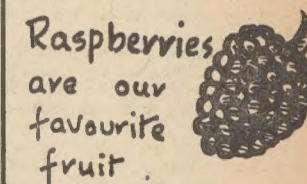 Raspberries
are our
favourite
fruit.